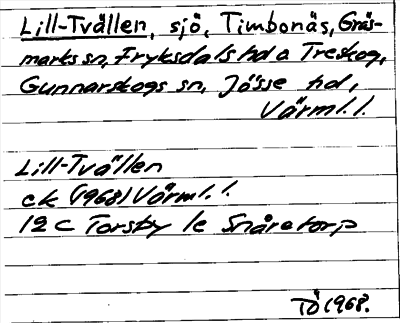 Lill-Tvällen, sjö, Timbonäs, Gräs-
marks sn, Fryksdals hd o Treskog,
Gunnarskogs sn, Jösse hd,
Värml. l.
Lill-Tvällen
ek (1968) Värml. l.
12 C Torsby 1c Snåretorp
TÖ 1968.